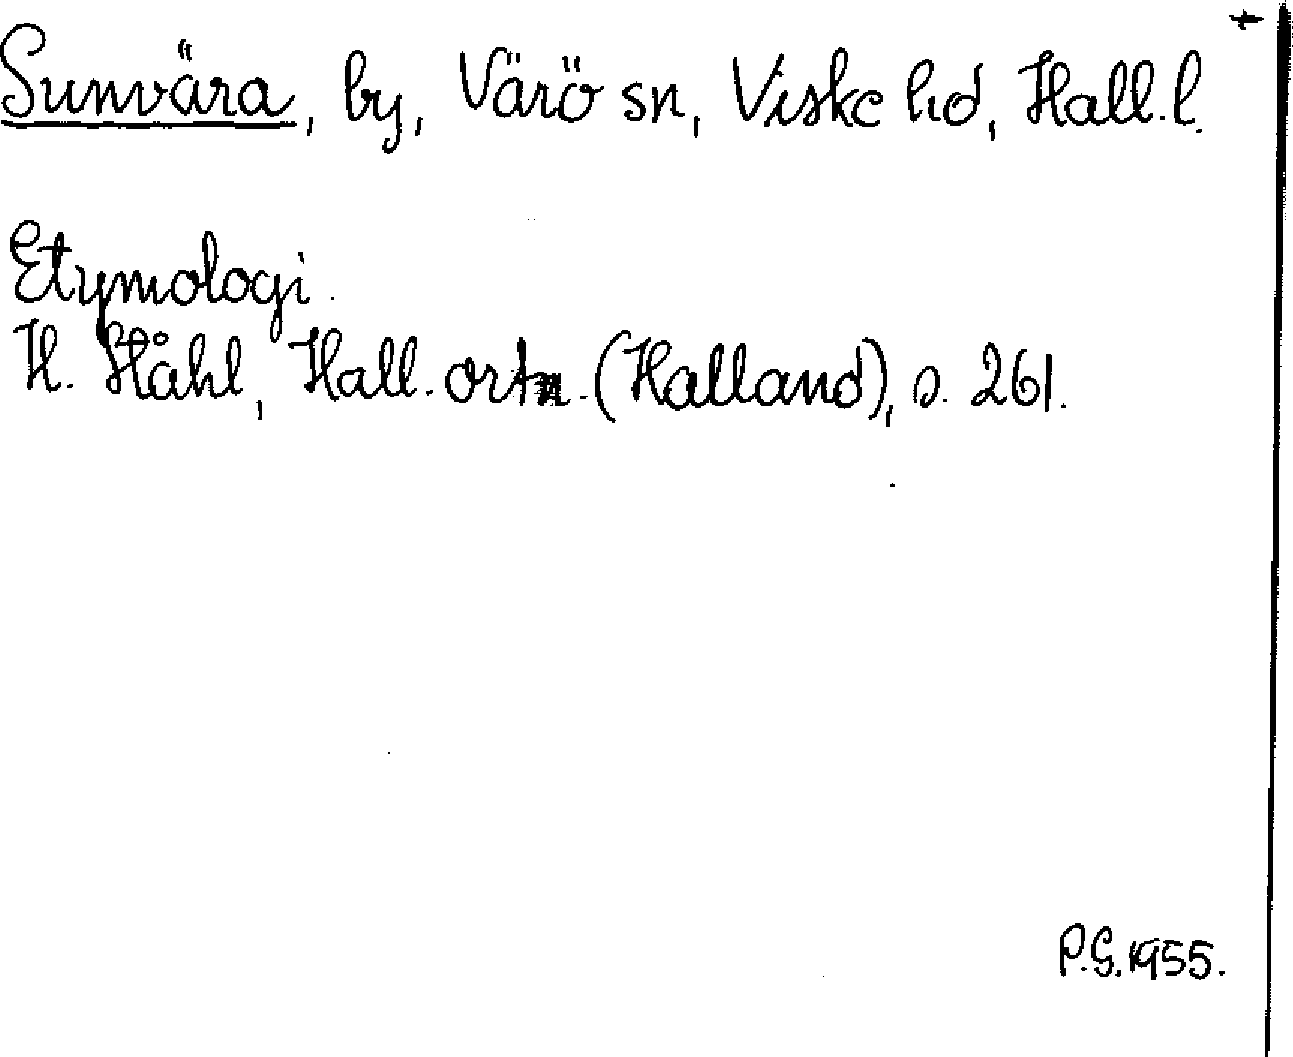 Sunvära, by, Värö sn, Viske hd, Hall. l.
Etymologi.
H. Ståhl, Hall. ortn. (Halland), s. 261.
P.G. 1955.